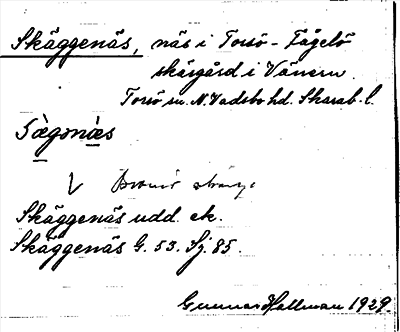 Skäggenäs, näs i Torsö-Fågelö
skärgård i Vänern.
Torsö sn. N. Vadsbo hd. Skarab. l.
Sægənæs
Skäggenäs udd. ek.
Skäggenäs G. 53. Sj. 85.
Gunnar Hallman 1929.